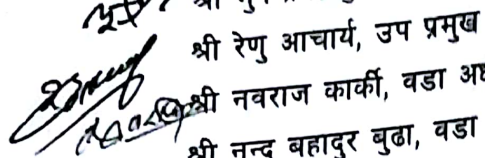 श्री
श्री रेणु आचार्य, उप प्रमुख
श्री नवराज कार्की, वडा
श्री नन्द बहादुर बुढा, वडा